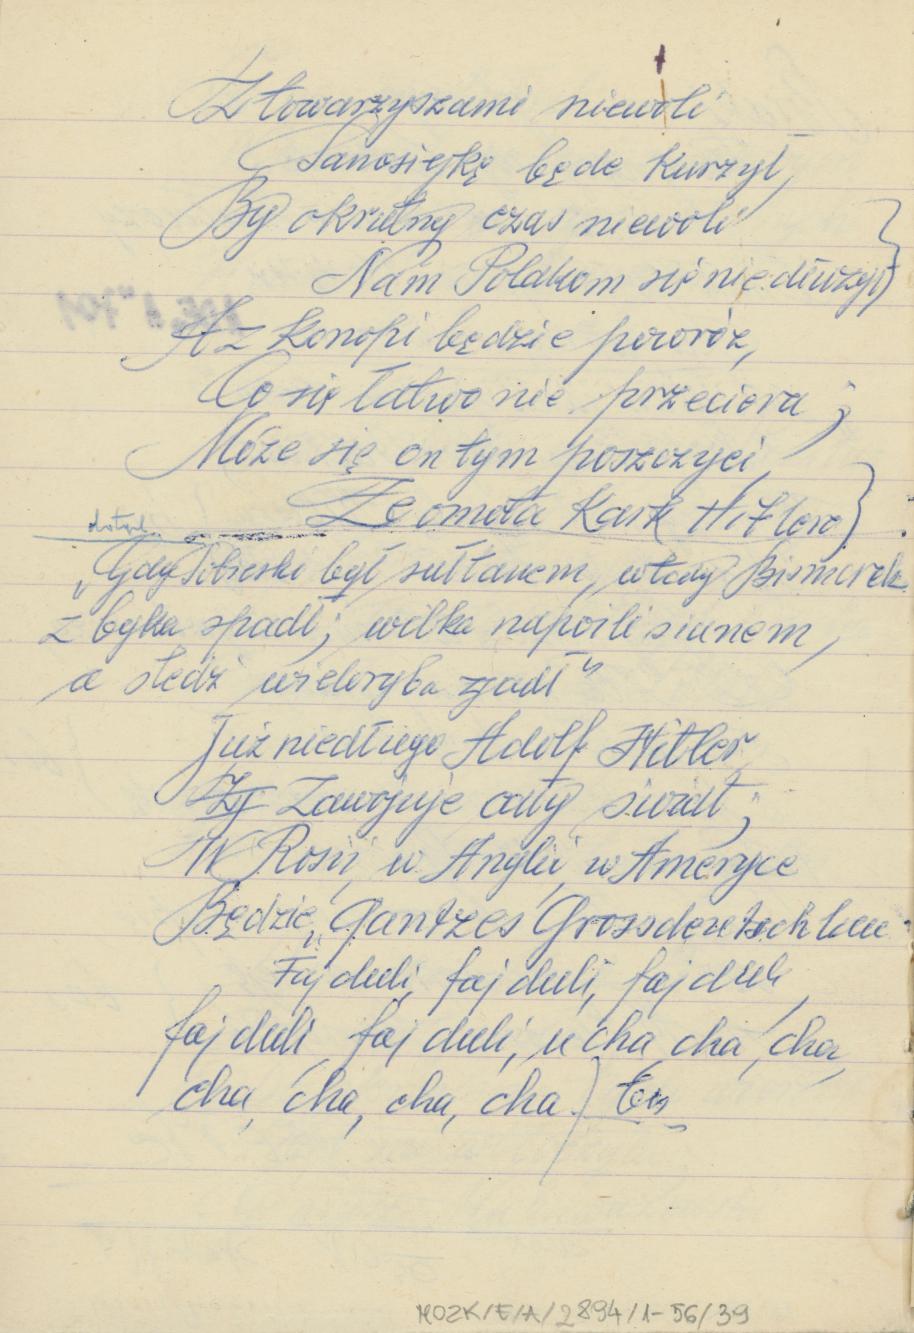 Z towarzyszami niewoli
Sanosiejkę będe kurzył,
By okrutny czas niewoli
Nam Polakom się nie dłużył
A z konopi będzie powróz,
Co się łatwo nie przeciera;
Może się on tym poszczyci
Ze omota kark Hitlera
"Gdy Sobieski był sułtanem, wtedy Bismarck
z byka spadł; wilka napoili sianem,
a śledź wieloryba zjadł"
Już niedługo Adolf Hitler,
Zawojuje cały świat;
W Rosji, w Anglii, w Ameryce
Będzie, "Gantzes Grossdeutschlan
Faj duli, faj duli, faj duli,
faj duli faj duli, u cha, cha, cha,
cha, cha, cha, cha
MOZK/E/A/2894/1-56/39